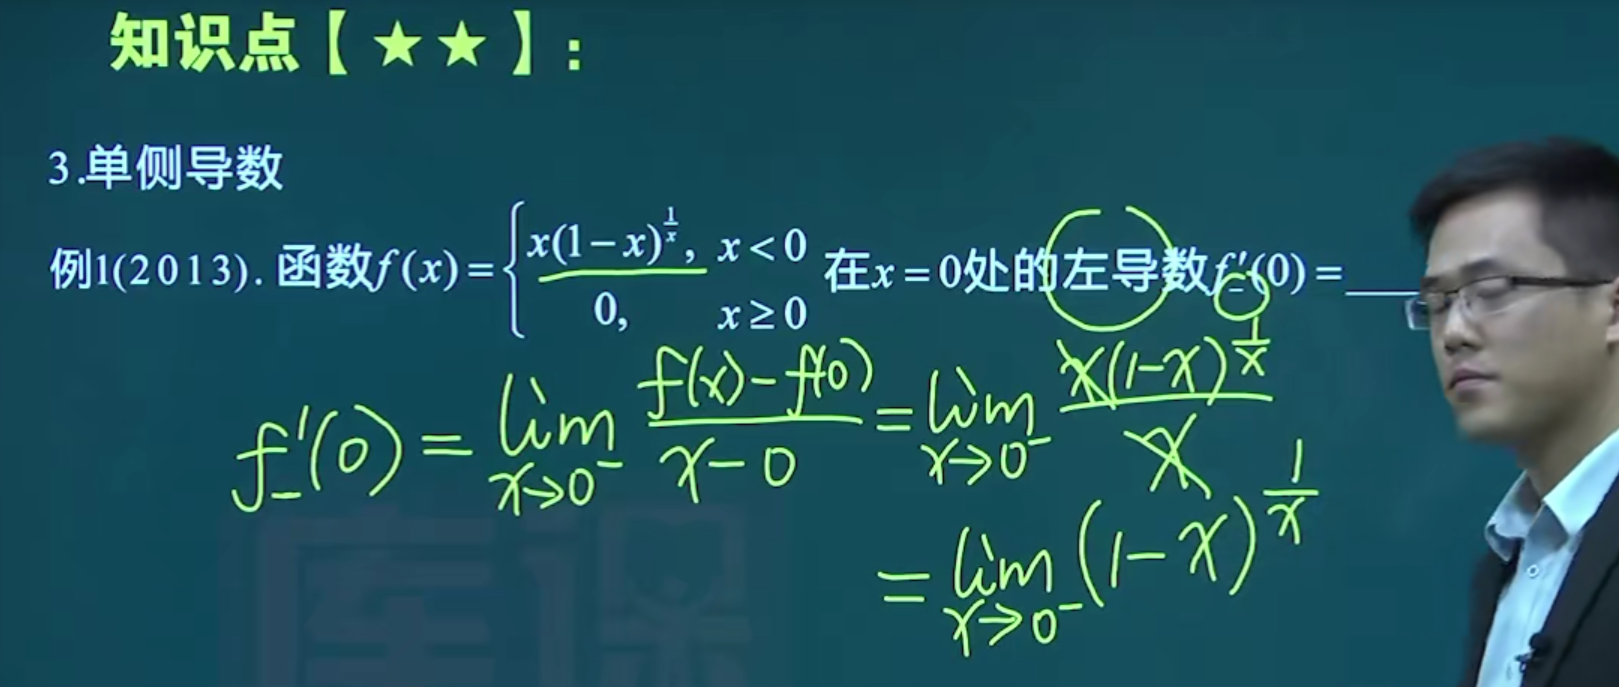 知识点【★★】:
3.单侧导数
例1(2013). 函数f(x)={x(1-x)^{1/x}, x<0; 0, x≥0 在x=0处的左导数f'₋(0)=____
f'₋(0) = lim_{x→0⁻} (f(x)-f(0))/(x-0) = lim_{x→0⁻} x(1-x)^{1/x}/x
= lim_{x→0⁻} (1-x)^{1/x}
库课